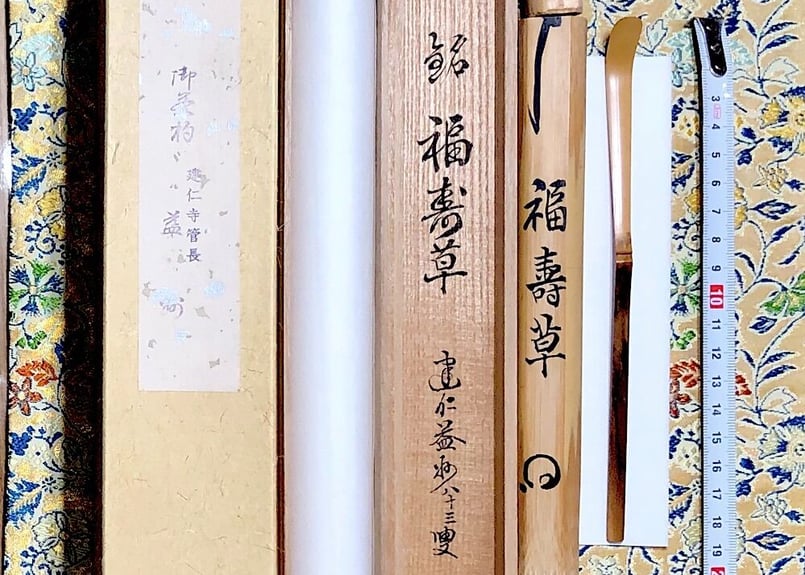 御茶杓
建仁寺管長
益州
銘 福寿草 建仁益州八十三叟
福壽草
3
4
5
6
7
8
9
10
11
12
13
14
15
16
17
18
19